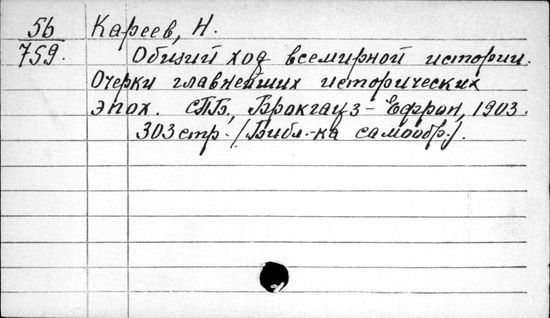 56 Кареев, Н.
759. Общий ход всемирной истории.
Очерки главнейших исторических
эпох. СПБ, Брокгауз-Ефрон, 1903.
303 стр. (Библ-ка самообр.).